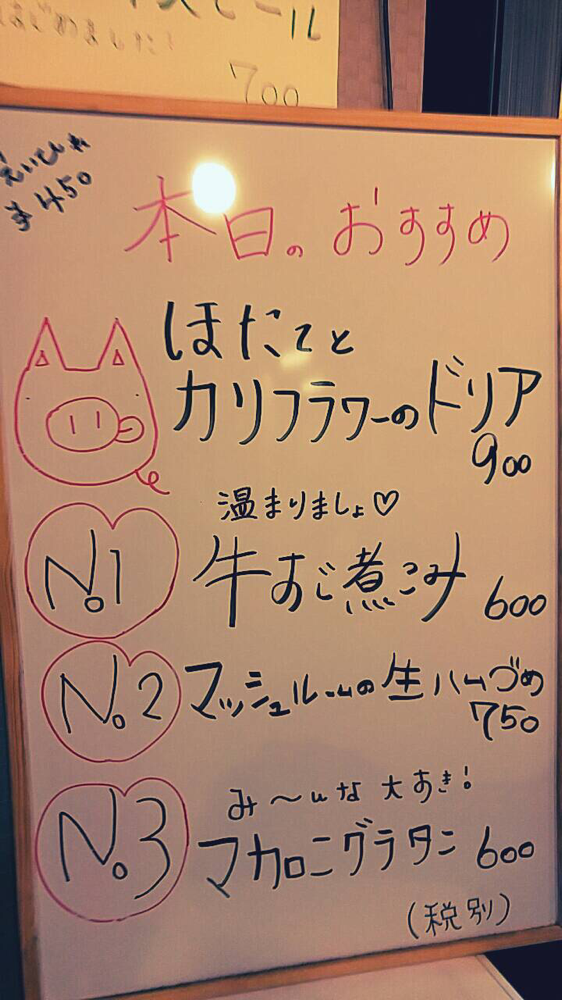 ビール
はじめました！
700
えいひれ
¥450
本日のおすすめ
ほたてと
カリフラワーのドリア
900
温まりましょ♡
No.1 牛すじ煮こみ 600
No.2 マッシュルームの生ハムづめ
750
み〜んな大すき！
No.3 マカロニグラタン 600
(税別)